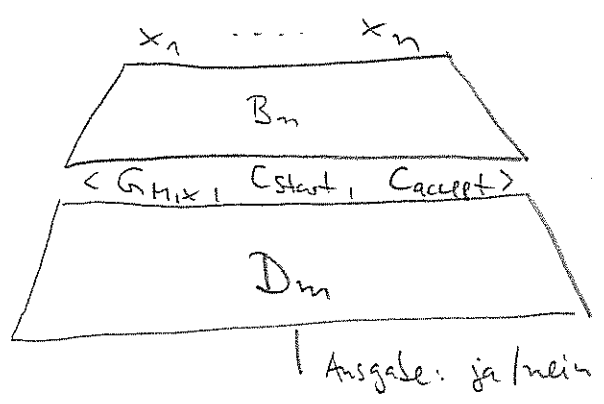 x₁ ..... xₙ
Bₙ
< G_{M,x}, C_{start}, C_{accept} >
Dₘ
Ausgabe: ja/nein